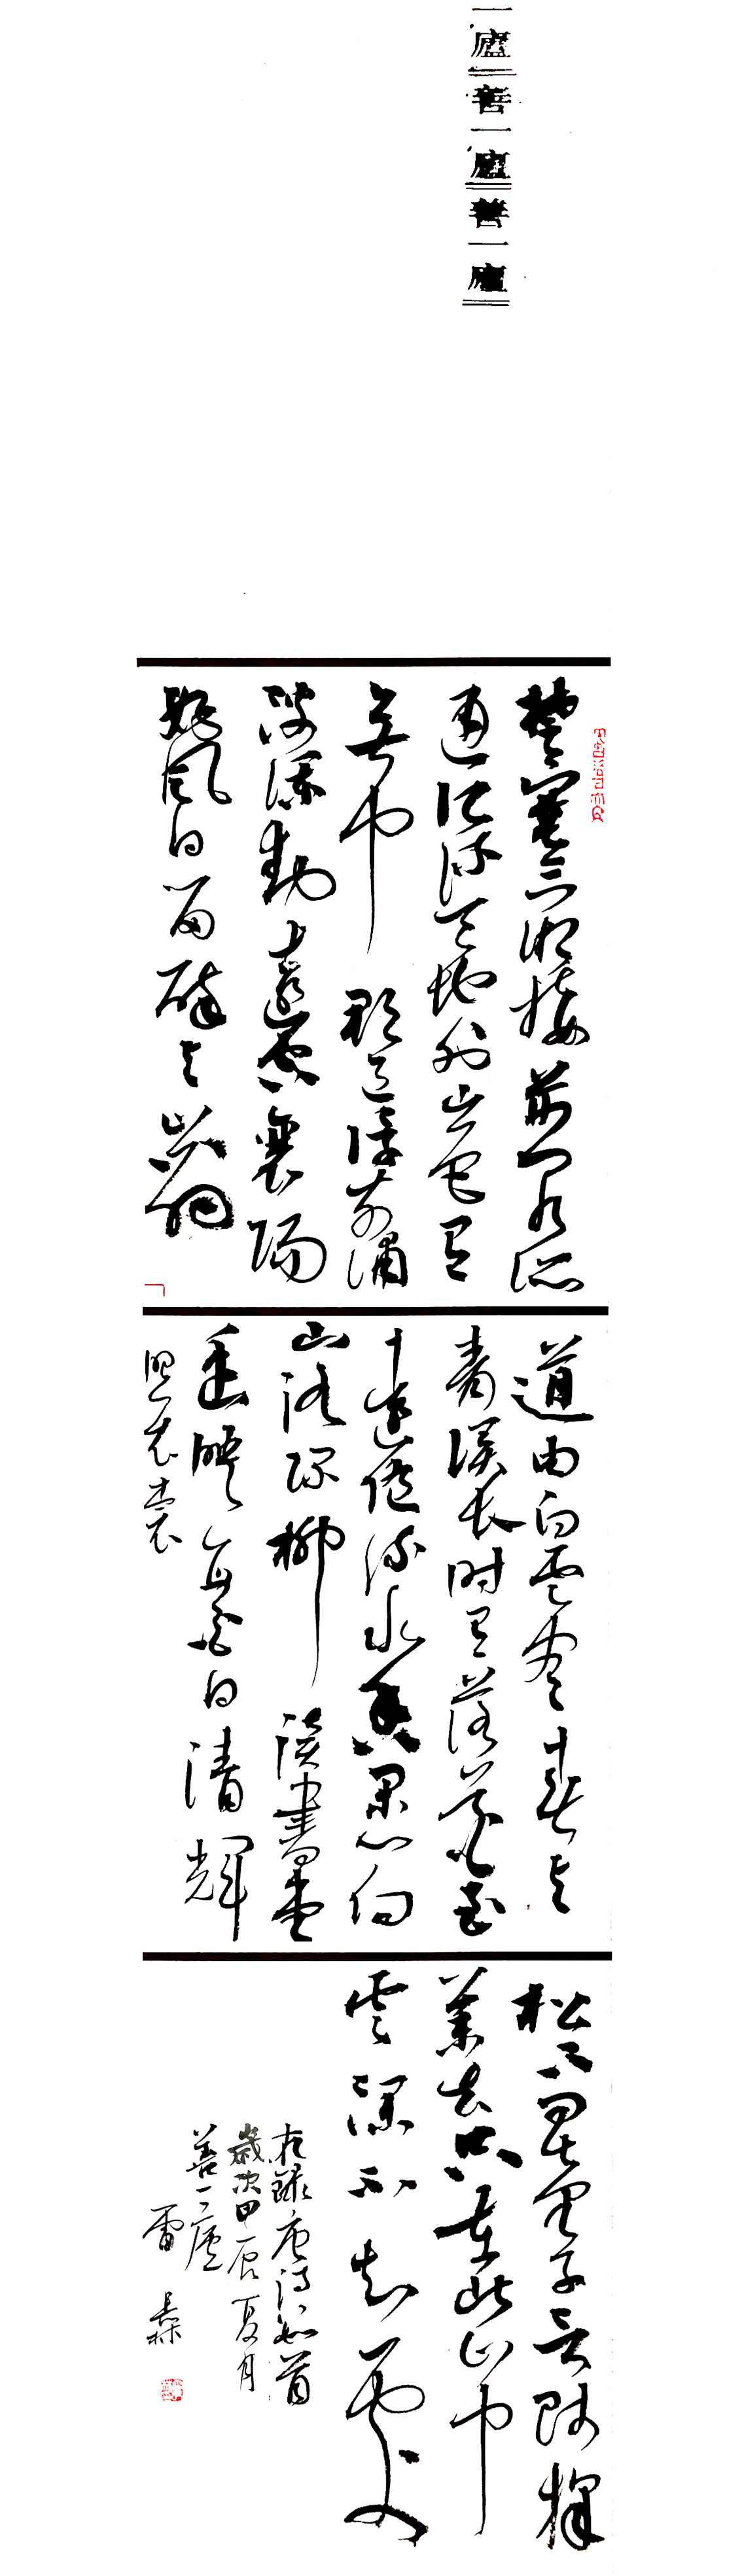 一廬善一廬善一廬
楚塞三湘接荊门九派
通江流天地外山色有
無中郡邑浮前浦
波澜動遠空襄陽
好风日留醉与山翁
道由白雲尽春与
青溪长时有落花至
远随流水香闲门向
山路深柳读書堂
幽映每白日清輝
照衣裳
松下问童子言师採
药去只在此山中
雲深不知处
右録唐诗首
歲次甲辰夏月
善一廬
雷